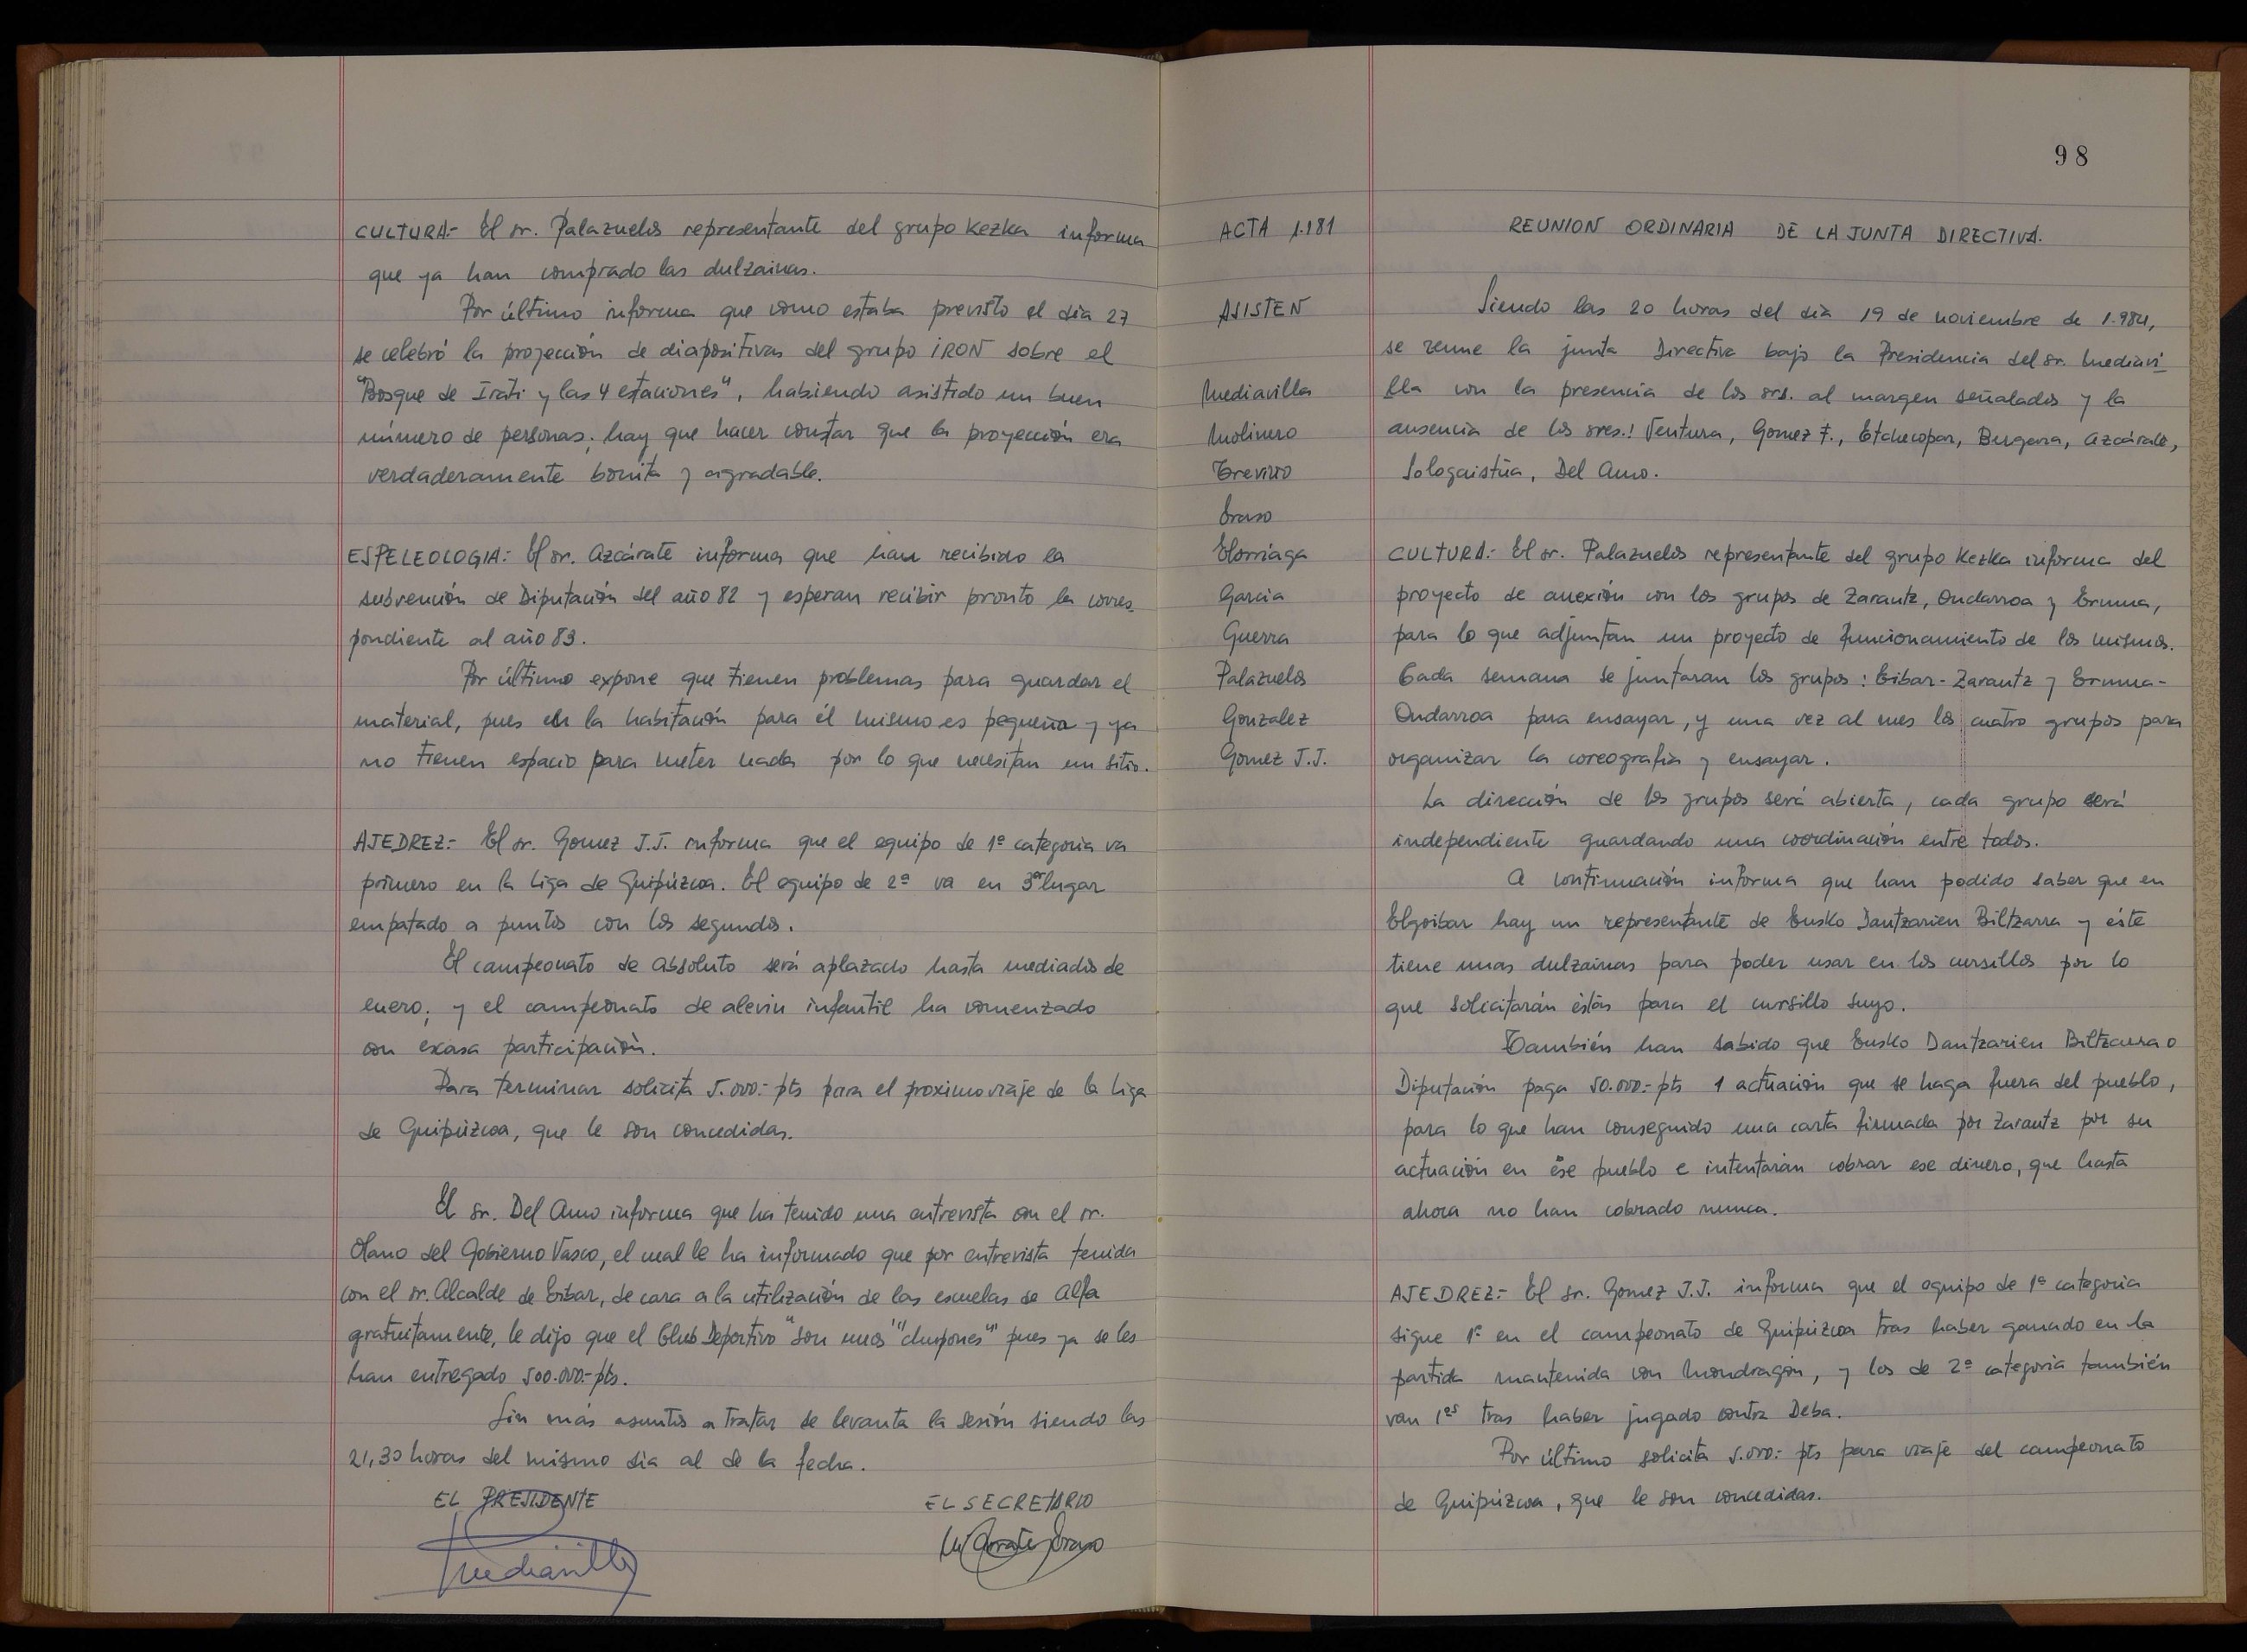 CULTURA.- El sr. Palazuelos representante del grupo Kezka informa
que ya han comprado las dulzainas.
Por último informa que como estaba previsto el dia 27
se celebró la proyección de diapositivas del grupo IRON sobre el
"Bosque de Irati y las 4 estaciones", habiendo asistido un buen
número de personas; hay que hacer constar que la proyección era
verdaderamente bonita y agradable.
ESPELEOLOGIA: El sr. Azcárate informa que han recibido la
subvención de Diputación del año 82 y esperan recibir pronto la corres_
pondiente al año 83.
Por último expone que tienen problemas para guardar el
material, pues en la habitación para él mismo es pequeña y ya
no tienen espacio para meter nada por lo que necesitan un sitio.
AJEDREZ.- El sr. Gomez J.J. informa que el equipo de 1ª categoria va
primero en la liga de Guipúzcoa. El equipo de 2ª va en 3er lugar
empatado a puntos con los segundos.
El campeonato de absoluto será aplazado hasta mediados de
enero; y el campeonato de alevin infantil ha comenzado
con escasa participación.
Para terminar solicita 5.000.- pts para el proximo viaje de la liga
de Guipúzcoa, que le son concedidas.
El sr. Del Amo informa que ha tenido una entrevista con el sr.
Olano del Gobierno Vasco, el cual le ha informado que por entrevista tenida
con el sr. Alcalde de Eibar, de cara a la utilización de las escuelas de Alfa
gratuitamente, le dijo que el Club Deportivo "son unos "chupones" pues ya se les
han entregado 500.000.- pts.
Sin más asuntos a tratar se levanta la sesión siendo las
21,30 horas del mismo dia al de la fecha.
EL PRESIDENTE
EL SECRETARIO
Mediavilla
98
ACTA 1.181
REUNION ORDINARIA DE LA JUNTA DIRECTIVA.
ASISTEN
Mediavilla
Molinero
Treviño
Eraso
Elorriaga
Garcia
Guerra
Palazuelos
Gonzalez
Gomez J.J.
Siendo las 20 horas del dia 19 de noviembre de 1.984,
se reune la junta Directiva bajo la Presidencia del sr. Mediavi_
lla con la presencia de los srs. al margen señalados y la
ausencia de los sres.: Ventura, Gomez F., Etchecopar, Bergara, Azcárate,
Sologaistúa, Del Amo.
CULTURA.- El sr. Palazuelos representante del grupo Kezka informa del
proyecto de anexión con los grupos de Zarautz, Ondarroa y Ermua,
para lo que adjuntan un proyecto de funcionamiento de los mismos.
Cada semana se juntaran los grupos: Eibar - Zarautz y Ermua -
Ondarroa para ensayar, y una vez al mes los cuatro grupos para
organizar la coreografia y ensayar.
La dirección de los grupos será abierta, cada grupo será
independiente guardando una coordinación entre todos.
A continuación informa que han podido saber que en
Elgoibar hay un representante de Eusko Dantzarien Biltzarra y éste
tiene unas dulzainas para poder usar en los cursillos por lo
que solicitarán éstas para el cursillo suyo.
También han sabido que Eusko Dantzarien Biltzarra o
Diputación paga 50.000.- pts 1 actuación que se haga fuera del pueblo,
para lo que han conseguido una carta firmada por Zarautz por su
actuación en ése pueblo e intentarán cobrar ese dinero, que hasta
ahora no han cobrado nunca.
AJEDREZ.- El sr. Gomez J.J. informa que el equipo de 1ª categoria
sigue 1º en el campeonato de Guipúzcoa tras haber ganado en la
partida mantenida con Mondragón, y los de 2ª categoria también
van 1os tras haber jugado contra Deba.
Por último solicita 5.000.- pts para viaje del campeonato
de Guipúzcoa, que le son concedidas.